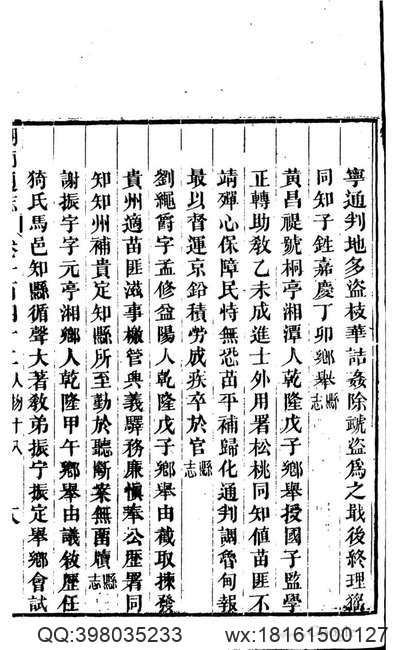 寧通判地多盜枝華詰姦除虣盜爲之戢後終理猺
同知子銋嘉慶丁卯鄉舉縣志
黃昌禔號桐亭湘潭人乾隆戊子鄉舉授國子監學
正轉助敎乙未成進士外用署松桃同知値苗匪不
靖殫心保障民恃無恐苗平補歸化通判調魯甸報
最以督運京鉛積勞成疾卒於官縣志
劉繩爵字孟修益陽人乾隆戊子鄉舉由截取揀發
貴州適苗匪滋事檄管興義驛務廉愼奉公歷署同
知知州補貴定知縣所至勤於聽斷案無留牘縣志
謝振宇字元亭湘鄉人乾隆甲午鄉舉由議敘歷任
猗氏馬邑知縣循聲大著敎弟振宁振定舉鄉會試
湖南通志 卷一百四十二 人物十八 大
QQ:398035233 wx:18161500127